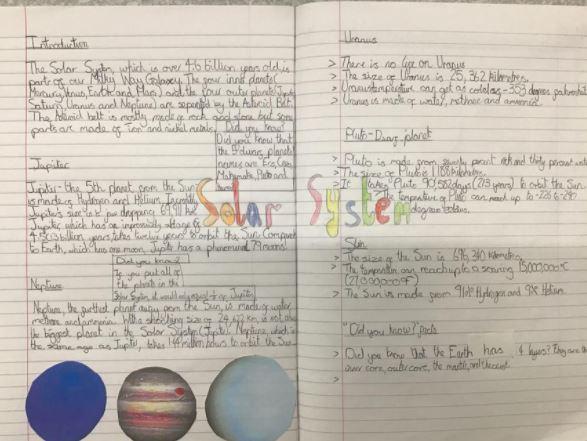 Introduction
The Solar System, which is over 4.6 billion years old is
parts of our Milky Way Galaxy. The four inner planets (
Mercury, Venus, Earth and Mars) and the four outer planets (
Saturn, Uranus and Neptune) are seperated by the Asteroid Belt.
The Asteroid belt is mostly made of rock and stone but some
parts are made of Iron and nickel metals.
Did you know?
Did you know that
the 5 dwarf planets
names are
Makemake, Pluto and
Jupiter
Jupiter - the 5th planet from the Sun
is made of Hydrogen and Helium.
Jupiter's size is
Jupiter, which has an
billion years, takes twelve years to orbit the Sun. Compared
to Earth, which has one moon, Jupiter has a phenomenal 79 moons!
Did you know?
If you put all of
the planets in the
Solar System, it would only equal of Jupiter
Neptune
Neptune, the furthest planet away from the Sun, is made of water,
methane and ammonia. With a shocking size of 24,622 km, is not also
the biggest planet in the Solar System (Jupiter). Neptune, which is
the same age as Jupiter, takes hours to orbit the Sun.
Solar System
Uranus
> There is no life on Uranus
> The size of Uranus is 25,362 kilometres.
> Uranus temperature can get as cold as -353 degrees
> Uranus is made of water, methane and ammonia.
Pluto - Dwarf planet
> Pluto is made from seventy percent rock and thirty percent
> The size of Pluto is 1,188 kilometres.
> It takes Pluto 90,582 days (275 years) to orbit the Sun.
> The temperature of Pluto can reach up to
degrees celsius.
Sun
> The size of the Sun is 696,340 kilometres
> The temperature can reach up to a searing 15000,000°C
(27,000,000°F)
> The Sun is made from 91% Hydrogen and Helium.
"Did you know?" facts
> Did you know that the Earth has 4 layers? They are the
inner core, outer core, the mantle, and the crust
>